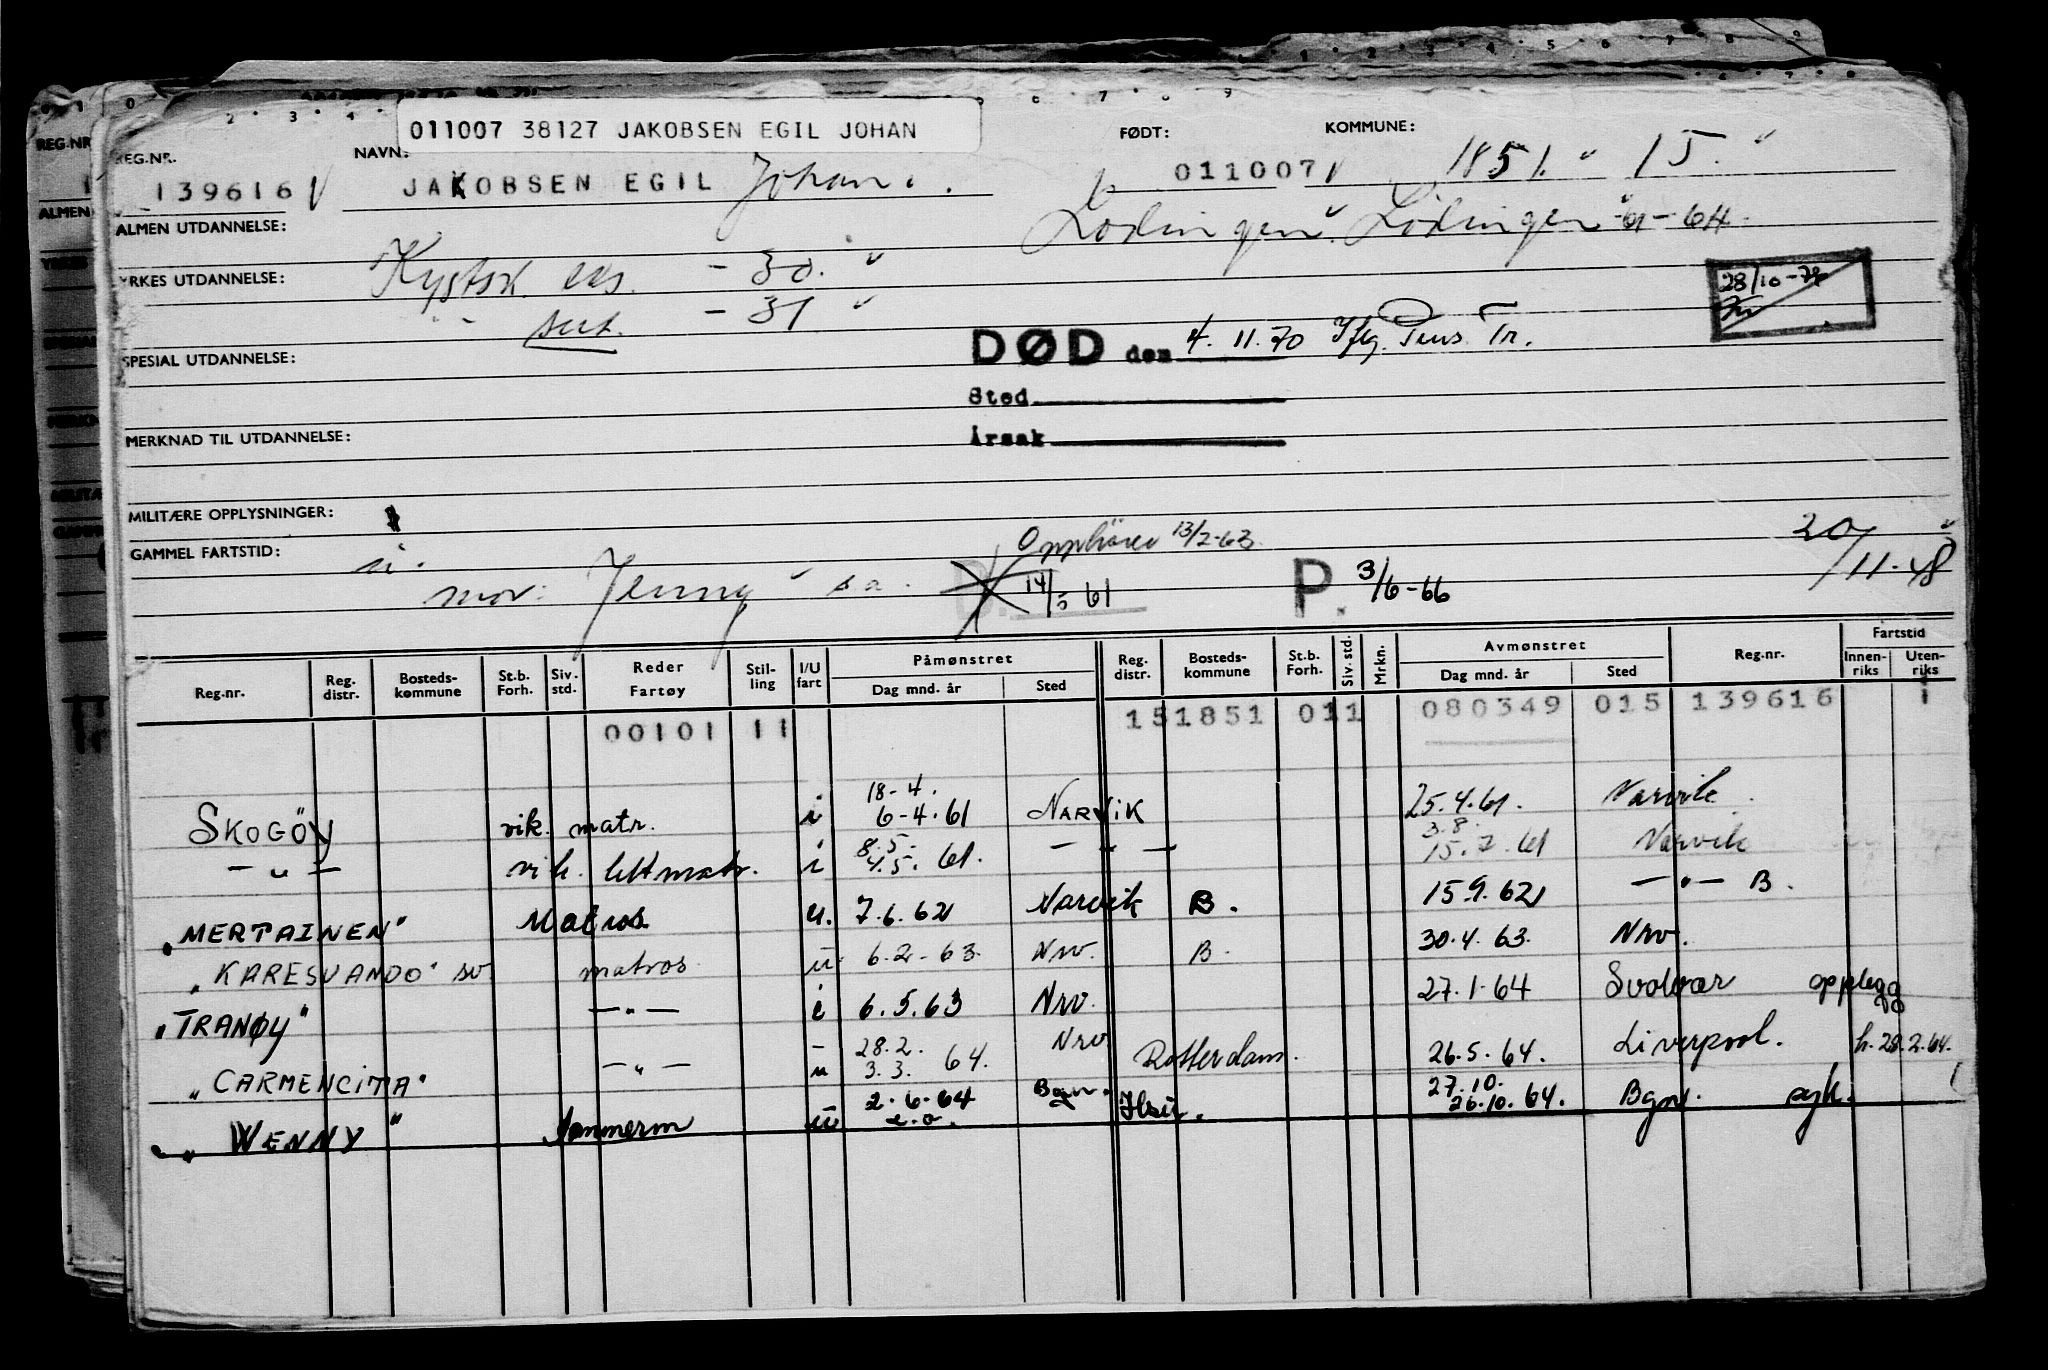 011007 38127 JAKOBSEN EGIL JOHAN
REG.NR. NAVN: FØDT: KOMMUNE:
139616 JAKOBSEN EGIL Johan. 011007 1851. 15.
ALMEN UTDANNELSE: Lödingen. Lödingen -61-64.
YRKES UTDANNELSE: Kystsk. eks. - 30.
sert. - 31
28/10-74
SPESIAL UTDANNELSE:
DØD den 4.11.70 Iflg. Pens. Tr.
Sted
Årsak
MERKNAD TIL UTDANNELSE:
MILITÆRE OPPLYSNINGER:
GAMMEL FARTSTID: u. Opphører 13/2-63. 20/11.48
mor: Jenny sa. 14/5 61 P. 3/6-66
Reg.nr. Reg. distr. Bosteds-kommune St.b. Forh. Siv. std. Reder Fartøy Stil-ling I/U fart Påmønstret Dag mnd. år Sted Reg. distr. Bosteds-kommune St.b. Forh. Siv. std. Mrkn. Avmønstret Dag mnd. år Sted Reg.nr. Fartstid Innen-riks Uten-riks
00101 11 151851 011 080349 015 139616 1
SKOGÖY vik. matr. i 18-4. 6-4.61 NARVIK 25.4.61. Narvik.
— " — vik. lettmatr. i 8.5. 4.5. 61. — " — 3.8. 15.7.61 Narvik
"MERTAINEN" Matros u. 7.6.62 Narvik B. 15.9.62 — " — B.
"KARESUANDO" sv. matros u. 6.2-63 Nrv. B. 30.4.63. Nrv.
"TRANØY" — " — i 6.5.63 Nrv. 27.1.64 Svolvær opplegg
"CARMENCITA" — " — u 28.2. 3.3. 64. Nrv Rotterdam. 26.5.64. Liverpool. h. 28.2.64.
"WENNY" tømmerm u 2.6.64 Bgn. 27.10. 26.10.64. Bgn.